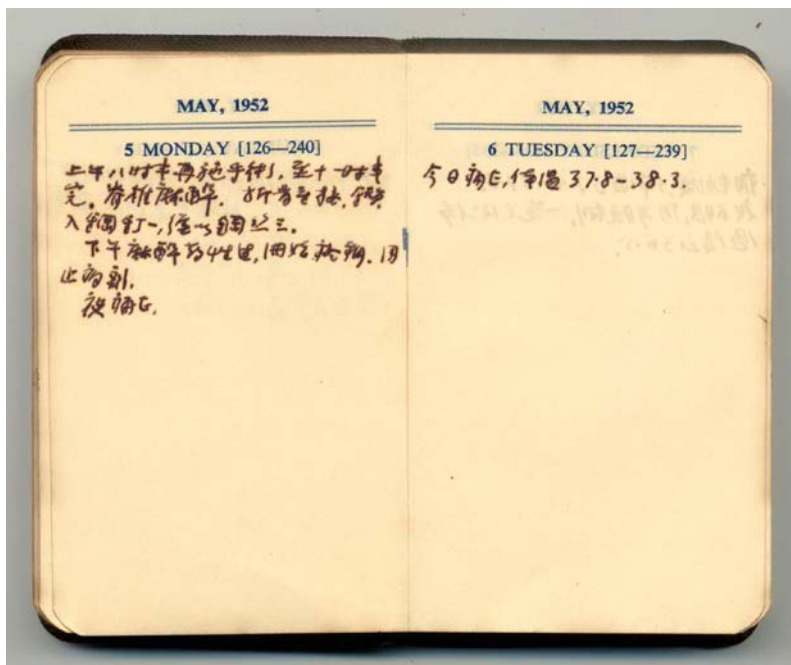 MAY, 1952
5 MONDAY [126—240]
上午八时半再施手术, 至十一时半
完。脊椎麻醉. 折骨重接, 
入钢钉一, 
下午麻醉药性过, 开始 
止痛剂.
夜痛亡.
MAY, 1952
6 TUESDAY [127—239]
今日痛亡, 体温 37.8-38.3.